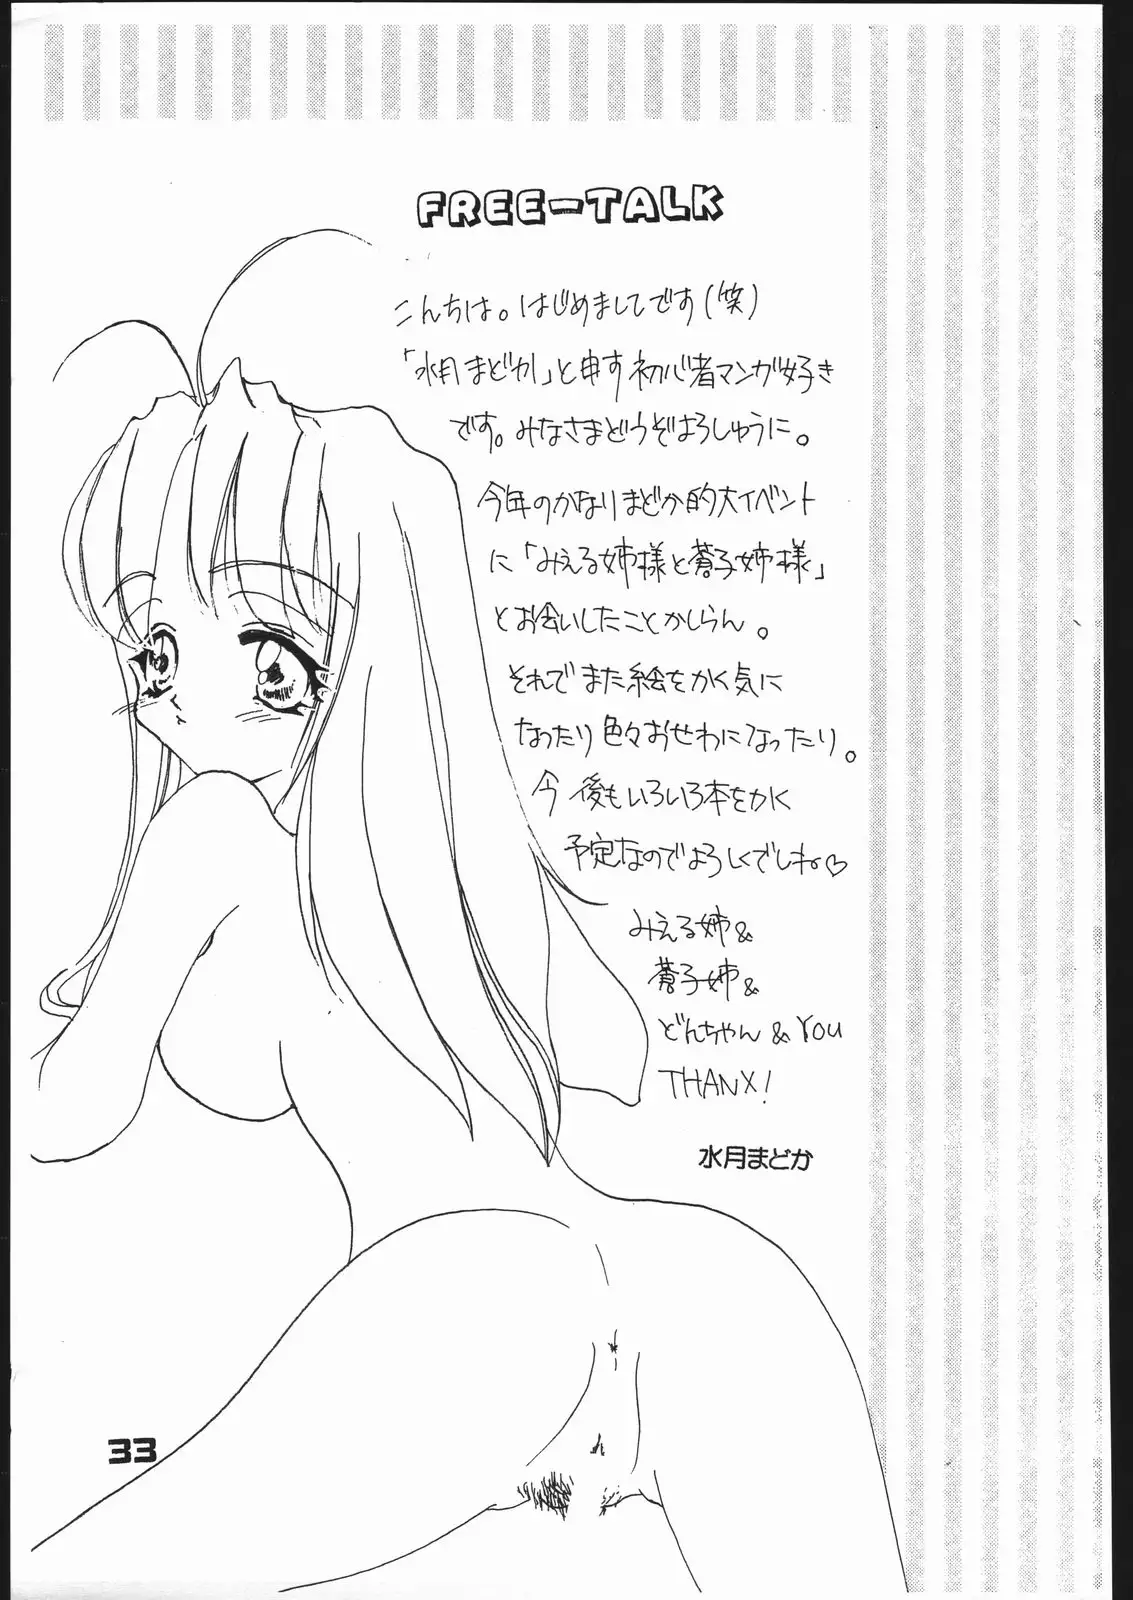 FREE-TALK
こんちは。はじめましてです(笑)
「水月まどか」と申す初心者マンガ好き
です。みなさまどうぞよろしゅうに。
今年のかなりまどか的大イベント
に「みえる姉様と蒼子姉様」
とお会いしたことかしらん。
それでまた絵をかく気に
なったり色々おせわになったり。
今後もいろいろ本をかく
予定なのでよろしくでしね♡
みえる姉&
蒼子姉&
どんちゃん & YOU
THANX!
水月まどか
33